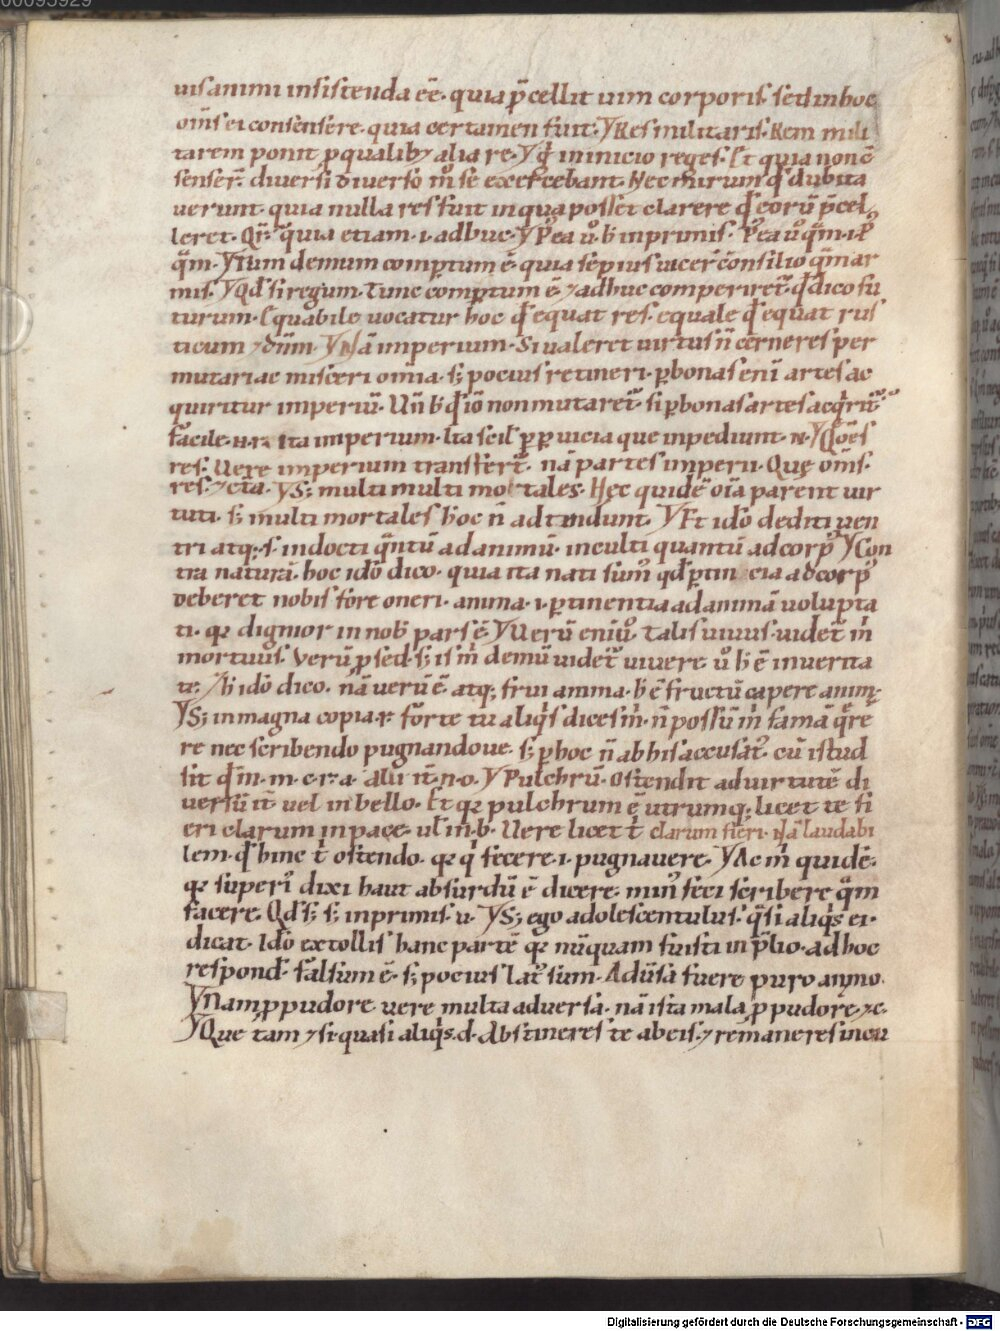 00095929
uisanimi insistenda eē· quia p̄cellit uim corporis· sed in hoc
om̄s ei consensere· quia certamen fuit· Res militaris· Rem mili
tarem ponit p̱ qualibꝫ alia re· qđ in inicio reges· Et quia non ↄ̄
senser̄· diuersi diuerso m̊ se exercebant· Hec mirum qđ dubita
uerunt· quia nulla res fuit in qua posset clarere qđ eorū p̄cel
leret· Qr̄· quia etiam·i·adhuc· P̊ea ů·h̄ inprimis· P̊ea ů qͣm·
qͣm· Tum demum compertum ē· quia sepius uicer̄ consilio qͣm ar
mis· Qđ si regum· Tunc compertum ē· ⁊ adhuc comperiret᷑· qđ dico fu
turum· Equabile uocatur hoc qđ equat res· equale qđ equat rus
ticum ⁊ dn̄m· Nā imperium· Si ualeret uirtus n̄ cerneres per
mutari ac misceri omīa· sꝫ pocius retineri· ꝑ bonas enī artes ac
quiritur imperiū· Un̄ h̄ qđ iō non mutaret᷑· si ꝑ bonas artes acqͥrit᷑
facile·n·r· Ita imperium· Ita scil̄ ꝓꝑ uicia que inpediunt·N· Qm̄ēs
res· Uere imperium transfert᷑· nā partes imperii· Quę om̄s·
res· ⁊ cet̄a· Sꝫ multi multi mortales· Hęc quidē oīa parent uir
tuti· sꝫ multi mortales hoc n̄ adtendunt· Et idō dediti uen
tri atqꝫ·s· indocti qͣntū ad animū· inculti quantū ad corp᷒ Con
tra naturā· hoc idō dico· quia ita nati sum᷒ qđ ꝑtinencia ad corp᷒
deberet nobis fore oneri· anima·i·ꝑtinentia ad animā uolupta
ti· qꝛ dignior in nob̄ pars ē Uerū enīů· talis uiuus· uidet᷑ m̄
mortuus· Verū ꝑ sed· sꝫ is m̄ demū uidet᷑ uiuere ů h̄ ē in uerita
te· h̄ idō dico· nā uerū ē· atqꝫ frui anima· h̄ ē fructū capere animę·
Sꝫ in magna copia·r· forte tu aliqͥs dices m̄· n̄ possū m̄ famā qͣere
re nec scribendo pugnandoue· sꝫ ꝑ hoc n̄ ab his accusat᷑· cū istud
sit qͣm·m·c·r·a· Alii it̄·n·o· Pulchrū· Ostendit ad uirtutē di
uersū it̄ uel in bello· Et qꝛ pulchrum ē utrumqꝫ licet te fi
eri clarum in pace· ul̄ in·b· Uere licet t̄ clarum fieri· nā laudabi
lem· qđ hinc t̄ ostendo· qꝛ qͥ fecere·i·pugnauere· Ac m̄ quidē·
qꝛ superi᷒ dixi haut absurdū ē dicere· min᷒ feci scribere qͣm
facere· Qđ sꝫ sꝫ inprimis·u· Sꝫ ego adolescentulus· qͣsi aliqͥs ei·
dicat· Idō extollis hanc partē qꝛ nūquam fuisti in p̄lio· ad hoc
respond̄· falsum ē· sꝫ pocius lat᷒ sum· Aduersa fuere puro an̄mo
Nam ꝓ pudore· uere multa aduersa· nā ista mala ꝓ pudore·⁊c·
Que tam ⁊si·quasi aliqͥs·d· Abstineres te ab eis·⁊ remaneres in eu
Digitalisierung gefördert durch die Deutsche Forschungsgemeinschaft - DFG